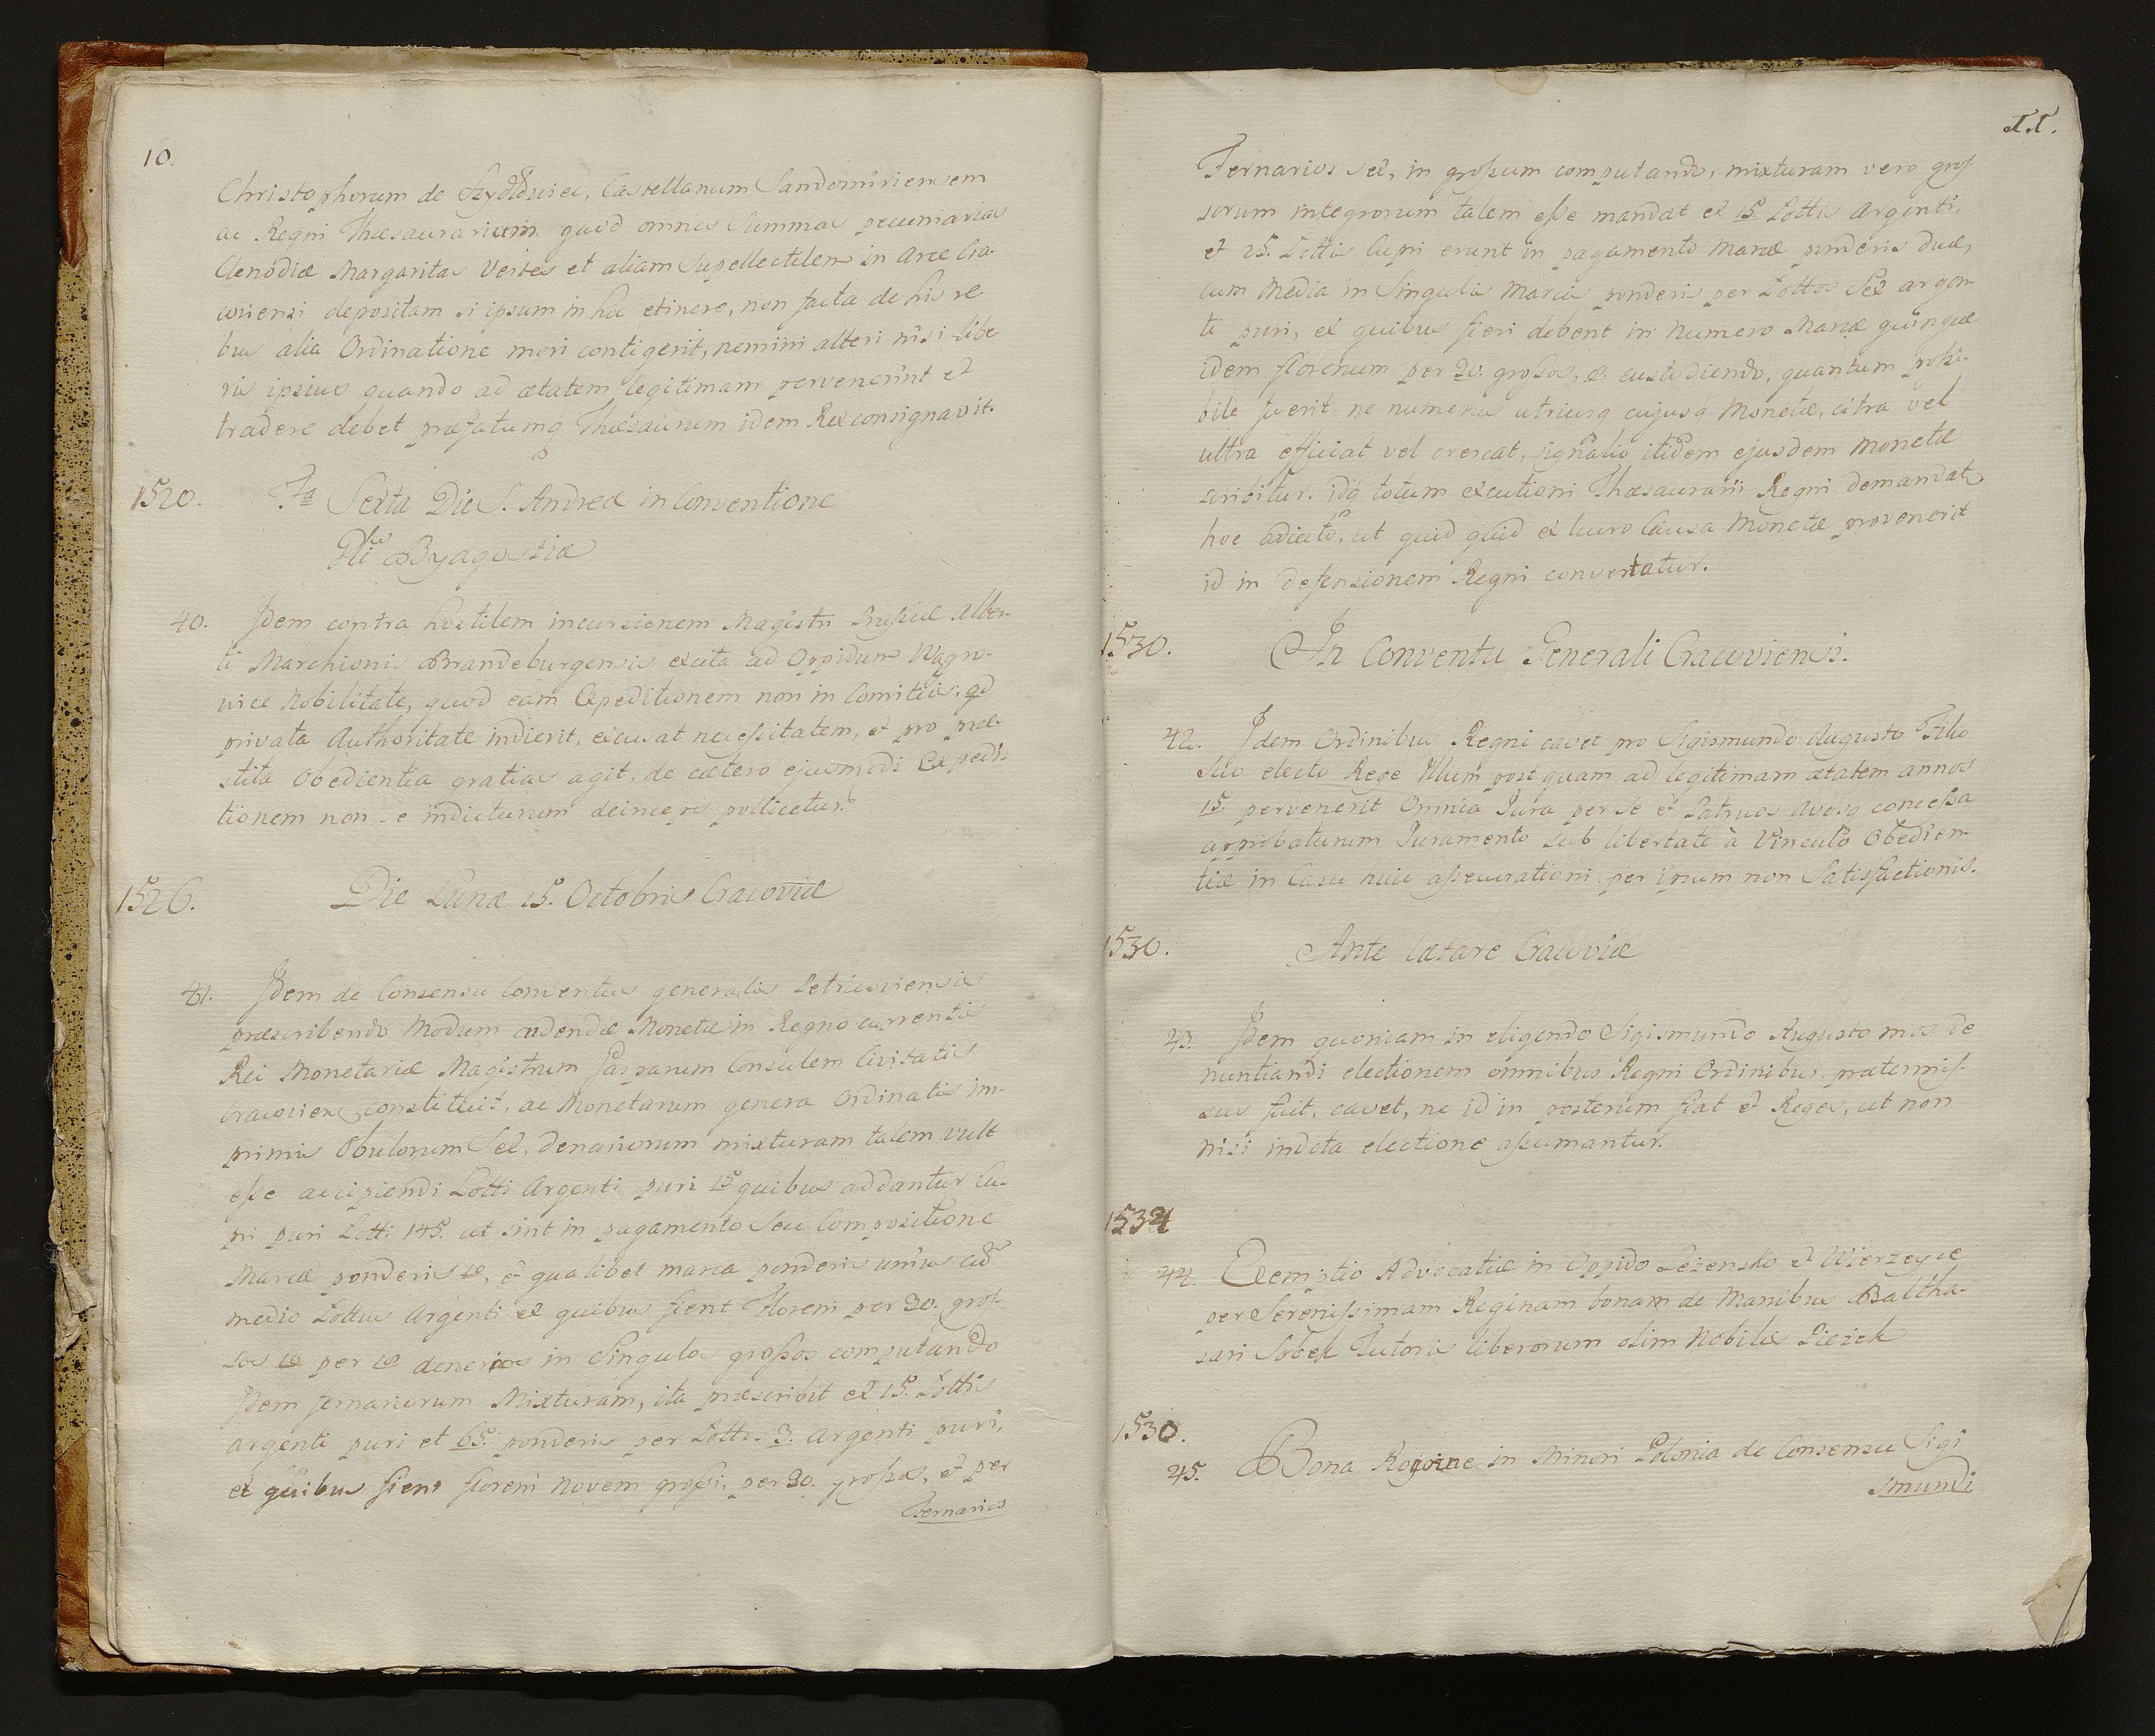 10.
Christophorum de Szydłowiec, Castellanum Sandomiriensem
ac Regni Thesaurarium quod omnes Summas pecuniarias
Clenodia Margaritas Vestes et aliam Supellectilem in Arce Cra-
coviensi depositam si ipsum in hoc itinere, non facta de his re
bus alia Ordinatione mori contigerit, nemini alteri nisi libe
ris ipsius quando ad ætatem legitimam pervenerint et
tradere debet præfatumq Thæsaurum idem Rex consignavit.
1520.
Fa Sexta Die S. Andreæ in Conventione
Bydgostiæ
40. Idem contra hostilem incursionem Magistri Prussiæ Alber-
ti Marchionis Brandeburgensis excita ad Oppidum Wągro-
Nobilitate, quod eam Expeditionem non in Comitiis, qd
privata Authoritate indixerit, excusat necessitatem, et pro præ-
stita Obedientia gratias agit, de cætero ejusmodi Expedi-
tionem non se indicturum deinceps pollicetur.
1526.
Die Lunæ 15. Octobris Cracoviæ
41. Idem de Consensu Conventus generalis Petricoviensis
præscribendo Modum cudendæ Monetæ in Regno currentis
Rei Monetariæ Magistrum Gasparum Consulem Civitatis
Cracovien constituit, ac Monetarum genera Ordinatis im-
primis Obulorum Sex. denariorum mixturam talem vult
esse accipiendi Lotti Argenti puri 15 quibus addantur Cu-
pri puri Lotti 145. ut sint in pagamento Seu Compositione
Marcæ ponderis 10, et qualibet marca ponderis unius cũ
medio Lottus Argenti ex quibus fient Floreni per 30. gros-
sos per denarios in Singulos grossos computando
Idem ternariorum Mixturam, ita præscribit ex 15. Lottis
argenti puri et 65. ponderis per Lottos 3. Argenti puri,
ex quibus fient floreni novem grossi, per 30. grossos, et per
Ternarios
11.
Ternarios sex, in grossum computando, mixturam vero gros
sorum integrorum talem esse mandat ex 15. Lottis Argenti,
et 25. Lottis Cupri erunt in pagamento Marcæ ponderis duæ,
cum Media in Singulis Marcis ponderis per Lottos Sex argen-
ti puri, ex quibus fieri debent in Numero Marcæ quinque
idem florenum per 30. grossos, custodiendo, quantum possi-
bile fuerit ne numerus utriusq cujusq Monetæ, citra vel
ultra efficiat vel crescat, itidem ejusdem Monetæ
scribitur. idq totum excutioni Thæsaurarii Regni demandat
hoc adiecto, ut quid quid ex lucro Causa Monetæ provenerit
id in defensionem Regni convertatur.
1530.
In Conventu Generali Cracoviensi.
42. Idem Ordinibus Regni cavet pro Sigismundo Augusto Filio
Suo electo Rege Illum post quam ad legitimam ætatem annos
15 pervenerit Omnia Jura per Se et Patruos Avosq concessa
approbaturum Juramento Sub libertate à Vinculo Obedien-
tiæ in Casu huic assecurationi per ipsum non Satisfactionis.
1530.
Ante Lætare Cracoviæ
43. Idem quoniam in eligendo Sigismundo Augusto mos de
nuntiandi electionem omnibus Regni Ordinibus prætermis-
sus fuit, cavet, ne id in posterum fiat et Reges, ut non
nisi indicta electione assumantur.
1534
44. Exemptio Advocatiæ in Oppido Leżensko et Wierzeyce
per Serenissimam Reginam bonam de Manibus Baltha-
sari Sobek Tutoris liberorum olim Nobilis Pieżek
1530.
45. Bona Regina in Minori Polonia de Consensu Sigi
smundi